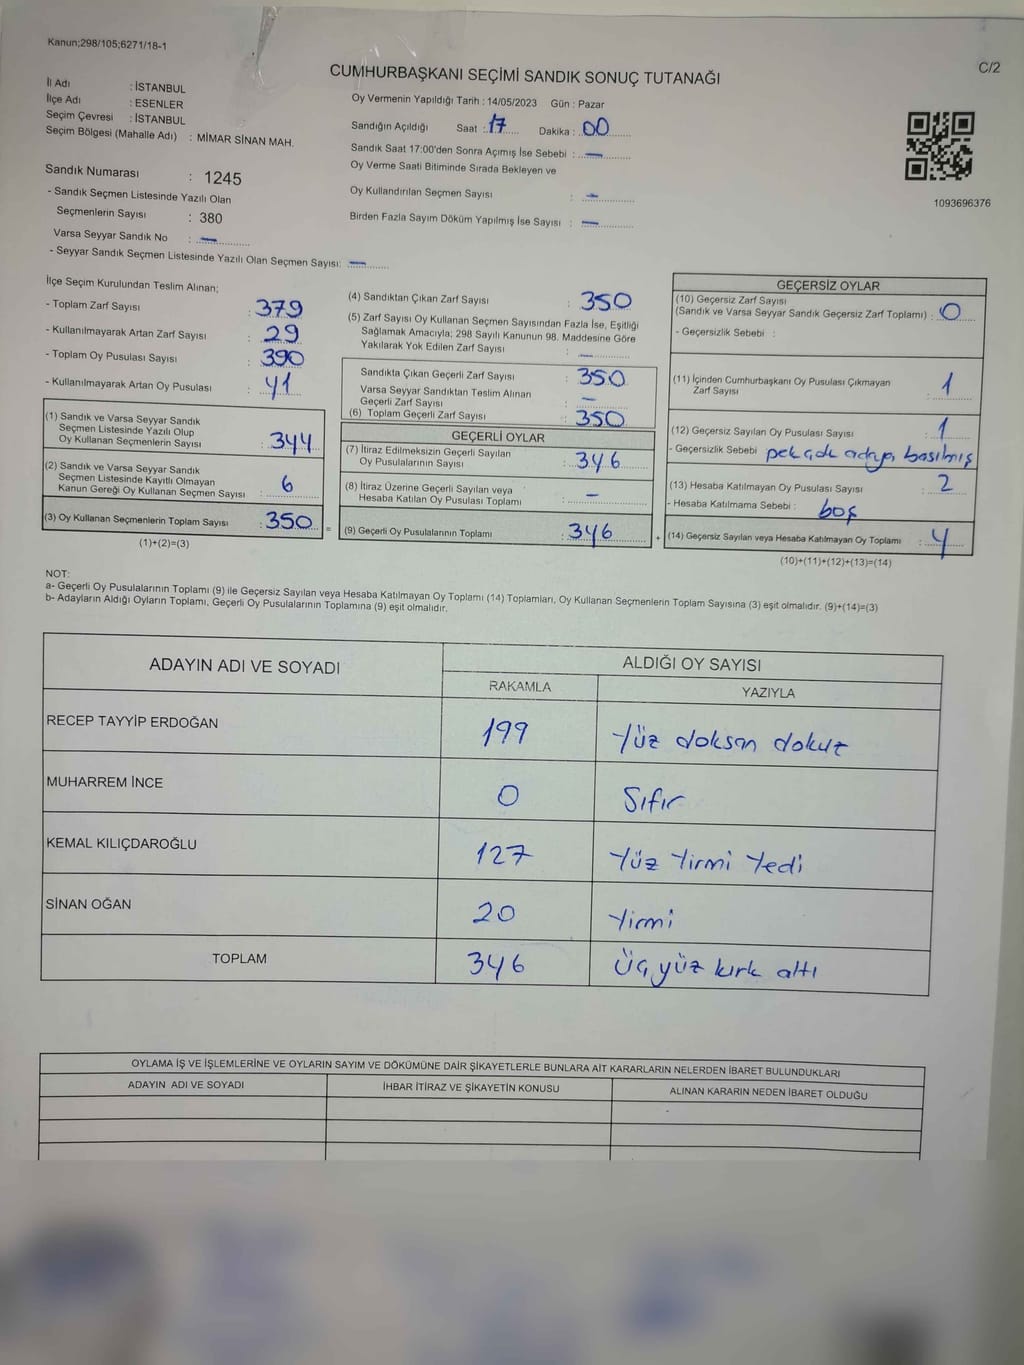 Kanun;298/105;6271/18-1
C/2
CUMHURBAŞKANI SEÇİMİ SANDIK SONUÇ TUTANAĞI
İl Adı : İSTANBUL
İlçe Adı : ESENLER
Seçim Çevresi : İSTANBUL
Seçim Bölgesi (Mahalle Adı) : MİMAR SİNAN MAH.
Sandık Numarası : 1245
- Sandık Seçmen Listesinde Yazılı Olan
Seçmenlerin Sayısı : 380
Varsa Seyyar Sandık No : —
- Seyyar Sandık Seçmen Listesinde Yazılı Olan Seçmen Sayısı: —
Oy Vermenin Yapıldığı Tarih : 14/05/2023 Gün : Pazar
Sandığın Açıldığı Saat : 17 Dakika : 00
Sandık Saat 17:00'den Sonra Açımış İse Sebebi : —
Oy Verme Saati Bitiminde Sırada Bekleyen ve
Oy Kullandırılan Seçmen Sayısı : —
Birden Fazla Sayım Döküm Yapılmış İse Sayısı : —
1093696376
İlçe Seçim Kurulundan Teslim Alınan;
- Toplam Zarf Sayısı : 379
- Kullanılmayarak Artan Zarf Sayısı : 29
- Toplam Oy Pusulası Sayısı : 390
- Kullanılmayarak Artan Oy Pusulası : 41
(1) Sandık ve Varsa Seyyar Sandık
Seçmen Listesinde Yazılı Olup
Oy Kullanan Seçmenlerin Sayısı : 344
(2) Sandık ve Varsa Seyyar Sandık
Seçmen Listesinde Kayıtlı Olmayan
Kanun Gereği Oy Kullanan Seçmen Sayısı : 6
(3) Oy Kullanan Seçmenlerin Toplam Sayısı : 350 =
(1)+(2)=(3)
(4) Sandıktan Çıkan Zarf Sayısı : 350
(5) Zarf Sayısı Oy Kullanan Seçmen Sayısından Fazla İse, Eşitliği
Sağlamak Amacıyla; 298 Sayılı Kanunun 98. Maddesine Göre
Yakılarak Yok Edilen Zarf Sayısı : —
Sandıkta Çıkan Geçerli Zarf Sayısı : 350
Varsa Seyyar Sandıktan Teslim Alınan
Geçerli Zarf Sayısı : —
(6) Toplam Geçerli Zarf Sayısı : 350
GEÇERLİ OYLAR
(7) İtiraz Edilmeksizin Geçerli Sayılan
Oy Pusulalarının Sayısı : 346
(8) İtiraz Üzerine Geçerli Sayılan veya
Hesaba Katılan Oy Pusulası Toplamı : —
(9) Geçerli Oy Pusulalarının Toplamı : 346 +
GEÇERSİZ OYLAR
(10) Geçersiz Zarf Sayısı
(Sandık ve Varsa Seyyar Sandık Geçersiz Zarf Toplamı) : 0
- Geçersizlik Sebebi :
(11) İçinden Cumhurbaşkanı Oy Pusulası Çıkmayan
Zarf Sayısı : 1
(12) Geçersiz Sayılan Oy Pusulası Sayısı : 1
- Geçersizlik Sebebi pek çok adaya basılmış
(13) Hesaba Katılmayan Oy Pusulası Sayısı : 2
- Hesaba Katılmama Sebebi : boş
(14) Geçersiz Sayılan veya Hesaba Katılmayan Oy Toplamı : 4
(10)+(11)+(12)+(13)=(14)
NOT:
a- Geçerli Oy Pusulalarının Toplamı (9) ile Geçersiz Sayılan veya Hesaba Katılmayan Oy Toplamı (14) Toplamları, Oy Kullanan Seçmenlerin Toplam Sayısına (3) eşit olmalıdır. (9)+(14)=(3)
b- Adayların Aldığı Oyların Toplamı, Geçerli Oy Pusulalarının Toplamına (9) eşit olmalıdır.
ADAYIN ADI VE SOYADI ALDIĞI OY SAYISI
RAKAMLA YAZIYLA
RECEP TAYYİP ERDOĞAN 199 Yüz doksan dokuz
MUHARREM İNCE 0 Sıfır
KEMAL KILIÇDAROĞLU 127 Yüz Yirmi Yedi
SİNAN OĞAN 20 Yirmi
TOPLAM 346 Üç yüz kırk altı
OYLAMA İŞ VE İŞLEMLERİNE VE OYLARIN SAYIM VE DÖKÜMÜNE DAİR ŞİKAYETLERLE BUNLARA AİT KARARLARIN NELERDEN İBARET BULUNDUKLARI
ADAYIN ADI VE SOYADI İHBAR İTİRAZ VE ŞİKAYETİN KONUSU ALINAN KARARIN NEDEN İBARET OLDUĞU